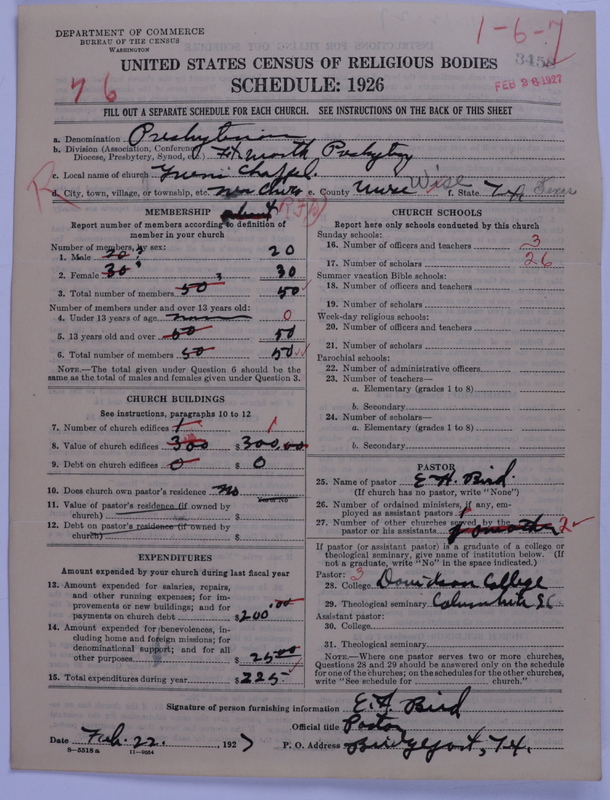 DEPARTMENT OF COMMERCE
BUREAU OF THE CENSUS
WASHINGTON
1-6-7
3458
FEB 28 1927
UNITED STATES CENSUS OF RELIGIOUS BODIES
76
SCHEDULE: 1926
FILL OUT A SEPARATE SCHEDULE FOR EACH CHURCH. SEE INSTRUCTIONS ON THE BACK OF THIS SHEET
a. Denomination Presbyterian
b. Division (Association, Conference, Diocese, Presbytery, Synod, etc.) Ft. Worth Presbytery
c. Local name of church Chappel.
d. City, town, village, or township, etc. e. County Wise Wise f. State Tex Texas
R
MEMBERSHIP
Report number of members according to definition of
member in your church
Number of members, by sex:
1. Male 20? 20
2. Female 30? 30
3. Total number of members 50 3 50
Number of members under and over 13 years old:
4. Under 13 years of age none 0
5. 13 years old and over 50 50
6. Total number of members 50 50
NOTE.—The total given under Question 6 should be
same as the total of males and females given under Question 3.
CHURCH BUILDINGS
See instructions, paragraphs 10 to 12
7. Number of church edifices 1 1
8. Value of church edifices 300 $ 300.00
9. Debt on church edifices 0 $ 0
10. Does church own pastor's residence No
Yes or No
11. Value of pastor's residence (if owned by
church) $
12. Debt on pastor's residence (if owned by
church) $
EXPENDITURES
Amount expended by your church during last fiscal year
13. Amount expended for salaries, repairs,
and other running expenses; for im-
provements or new buildings; and for
payments on church debt $200.00
14. Amount expended for benevolences, in-
cluding home and foreign missions; for
denominational support; and for all
other purposes $ 25.00
15. Total expenditures during year $225.-
CHURCH SCHOOLS
Report here only schools conducted by this church
Sunday schools:
16. Number of officers and teachers 3
17. Number of scholars 26
Summer vacation Bible schools:
18. Number of officers and teachers
19. Number of scholars
Week-day religious schools:
20. Number of officers and teachers
21. Number of scholars
Parochial schools:
22. Number of administrative officers
23. Number of teachers—
a. Elementary (grades 1 to 8)
b. Secondary
24. Number of scholars—
a. Elementary (grades 1 to 8)
b. Secondary
PASTOR
25. Name of pastor E. A. Bird.
(If church has no pastor, write "None")
26. Number of ordained ministers, if any, em-
ployed as assistant pastor
27. Number of other churches served by the
pastor or his assistants 2
If pastor (or assistant pastor) is a graduate of a college or
theological seminary, give name of institution below. (If
not a graduate, write "No" in the space indicated.)
Pastor: 3
28. College Davidson College
29. Theological seminary Columbia S.C.
Assistant pastor:
30. College
31. Theological seminary
NOTE.—Where one pastor serves two or more churches,
Questions 28 and 29 should be answered only on the schedule
for one of the churches; on the schedules for the other churches,
write "See schedule for ........ church."
Signature of person furnishing information E. A. Bird
Official title Pastor
Date Feb. 22, 1927 P. O. Address Bridgeport, Tx.
8-5518a 11-9664